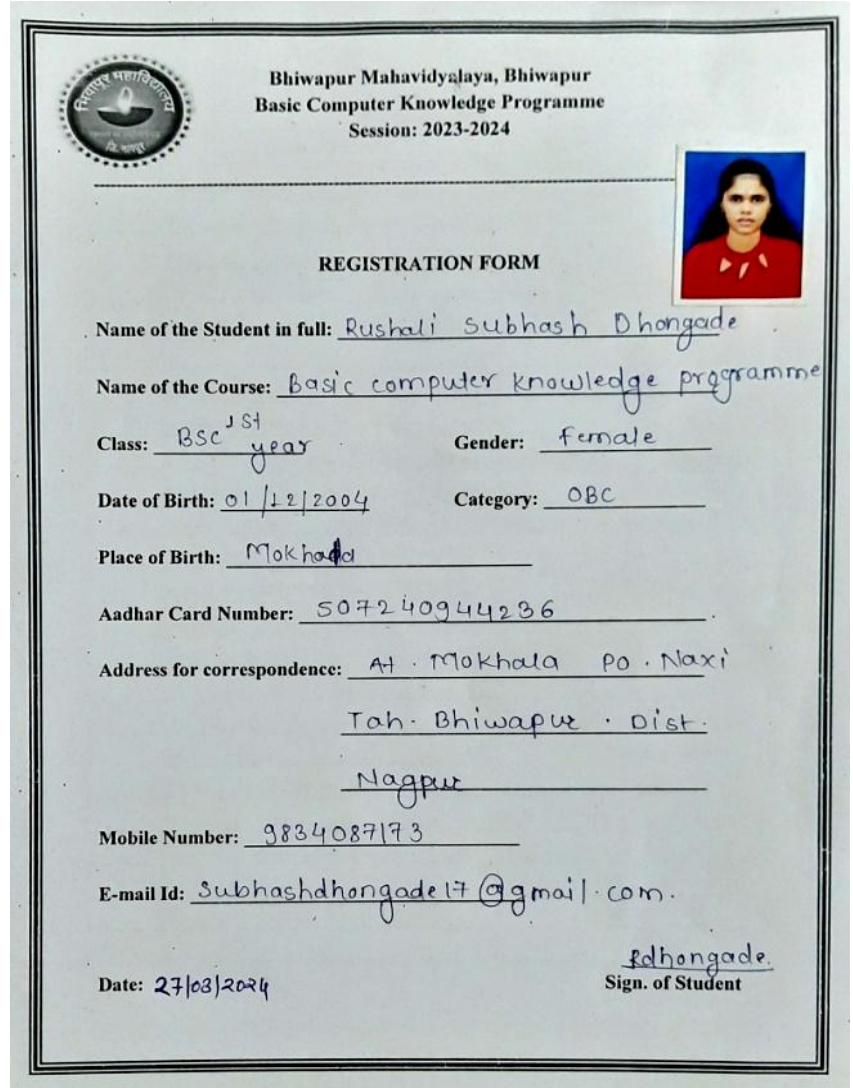 भिवापूर महाविद्यालय
जि. नागपूर
Bhiwapur Mahavidyalaya, Bhiwapur
Basic Computer Knowledge Programme
Session: 2023-2024
REGISTRATION FORM
Name of the Student in full: Rushali Subhash Dhongade
Name of the Course: Basic computer knowledge programme
Class: BSC 1st year Gender: female
Date of Birth: 01/12/2004 Category: OBC
Place of Birth:
Aadhar Card Number: 507240944236
Address for correspondence: At. Mokhala PO. Naxi
Tah. Bhiwapur. Dist.
Nagpur
Mobile Number: 9834087173
E-mail Id: Subhashdhongade17@gmail.com.
Rdhongade.
Date: 27/03/2024 Sign. of Student